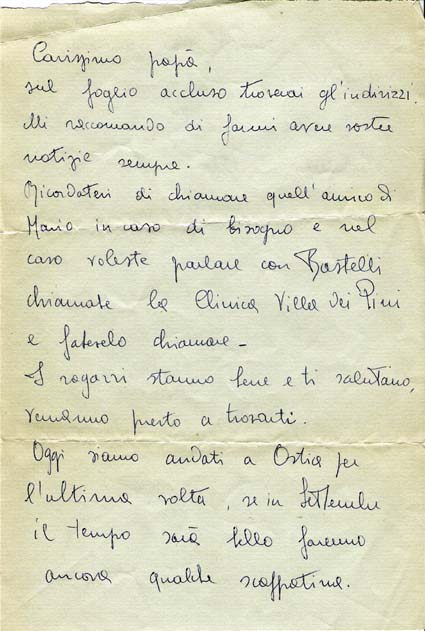 Carissimo papà,
sul foglio accluso troverai gl'indirizzi.
Mi raccomando di farmi avere vostre
notizie sempre.
Ricordatevi di chiamare quell'amico di
Mario in caso di bisogno e nel
caso voleste parlare con Bastelli
chiamate la Clinica Villa dei Pini
e fatevelo chiamare -
I ragazzi stanno bene e ti salutano,
verranno presto a trovarti.
Oggi siamo andati a Ostia per
l'ultima volta, se in Settembre
il tempo sarà bello faremo
ancora qualche scappatina.